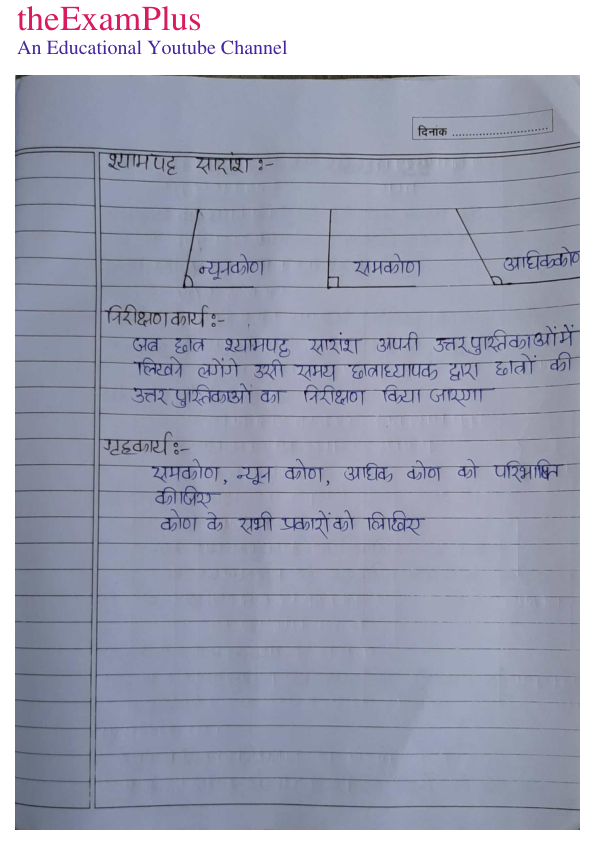 theExamPlus
An Educational Youtube Channel
दिनांक ............................
श्यामपट्ट सारांश :-
न्यूनकोण समकोण अधिककोण
निरीक्षण कार्य :-
जब छात्र श्यामपट्ट सारांश अपनी उत्तर पुस्तिकाओं में
लिखने लगेंगे उसी समय छात्राध्यापक द्वारा छात्रों की
उत्तर पुस्तिकाओं का निरीक्षण किया जाएगा
गृहकार्य :-
समकोण, न्यून कोण, अधिक कोण को परिभाषित
कीजिए
कोण के सभी प्रकारों को लिखिए